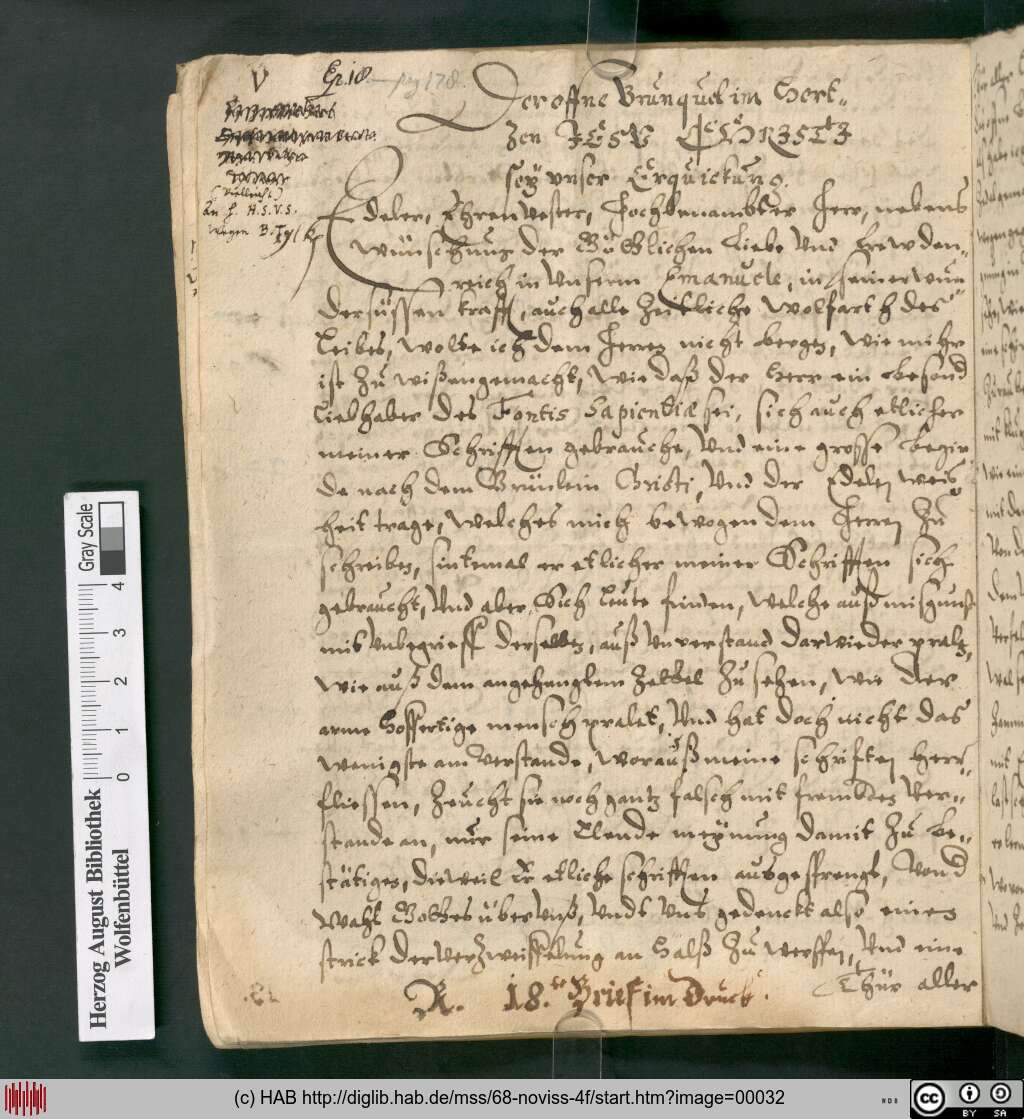 V Ep. 18. pag 178.
(Vielleicht)
An H. H.S.V.S.
Der offne Brunquel im Hert„
zen JESV CHRJSTJ
sey vnser Erquickung.
Edeler, Ehrenvester, Hochbenambter Herr, nebens
wünschung der Göttlichen Liebe Vnd frewden„
reich in Vnserm Emanuele, in seiner wun„
dersüssen krafft, auch alle zeitliche wolfarth des
Leibes, wolte ich dem Herren nicht bergen, wie mihr
ist zu wißen gemacht, wie daß der Herr ein besond
Liebhaber des Fontis Sapientiæ sei, sich auch etlicher
meiner Schrifften gebrauche, Vnd eine grosse begir
de nach dem Brünlein Christi, Vnd der Edelen weis
heit trage, welches mich bewogen dem Herren zu
schreiben, sintemal er etlicher meiner Schrifften sich
gebraucht, Vnd aber sich leute finden, welche auß misgunst
mit Vnbegrieff derselben, auß Vnverstand darwieder pralen,
wie auß dem angehengtem zettel zu sehen, wie der
arme hoffertige mensch pralet, Vnd hat doch nicht das
wenigste am Verstande, woraus meine schrifften herr„
fliessen, zeucht sie noch gantz falsch mit frembden Ver„
stande an, nur seine Elende meynung damit zu be„
stätigen, dieweil Er etliche schrifften ausgesprengt, Von d
wahl Gottes über Vnß, Vndt Vns gedenckt also einen
strick der verzweiffelung an halß zu werffen, Vnd eine
Thür aller
R. 18.te Brief im Druck.
Gray Scale
0 1 2 3 4
Herzog August Bibliothek
Wolfenbüttel
(c) HAB http://diglib.hab.de/mss/68-noviss-4f/start.htm?image=00032
WDB
cc BY SA